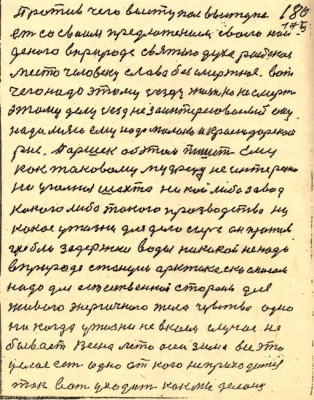 Против чего выступал выступа 180
ет со своим предложением своего най 145
деного в природе святого духа райское
место человеку слава бесмертное. вот
чего надо этому уезду жизню не смерт
этому делу уезд не заинтересованый ему
надо ему надо и краснодарской
рис. Паршек об этом пишет ему
как таковому мудрецу не интересно
ни угольная шахта ни кой либо завод
какого либо такого прозводство ни
какое у жизни для дело
гребли задержки воды никакой не надо
в природе станции арктическим
надо для естественной стороны для
живого энергичного тела чувство одно
ни когда у жизни не в каем случае не
бывает Весна лето оси зима все это
целое ест одно от кого не приходится
так вот уходит как мы делаиш